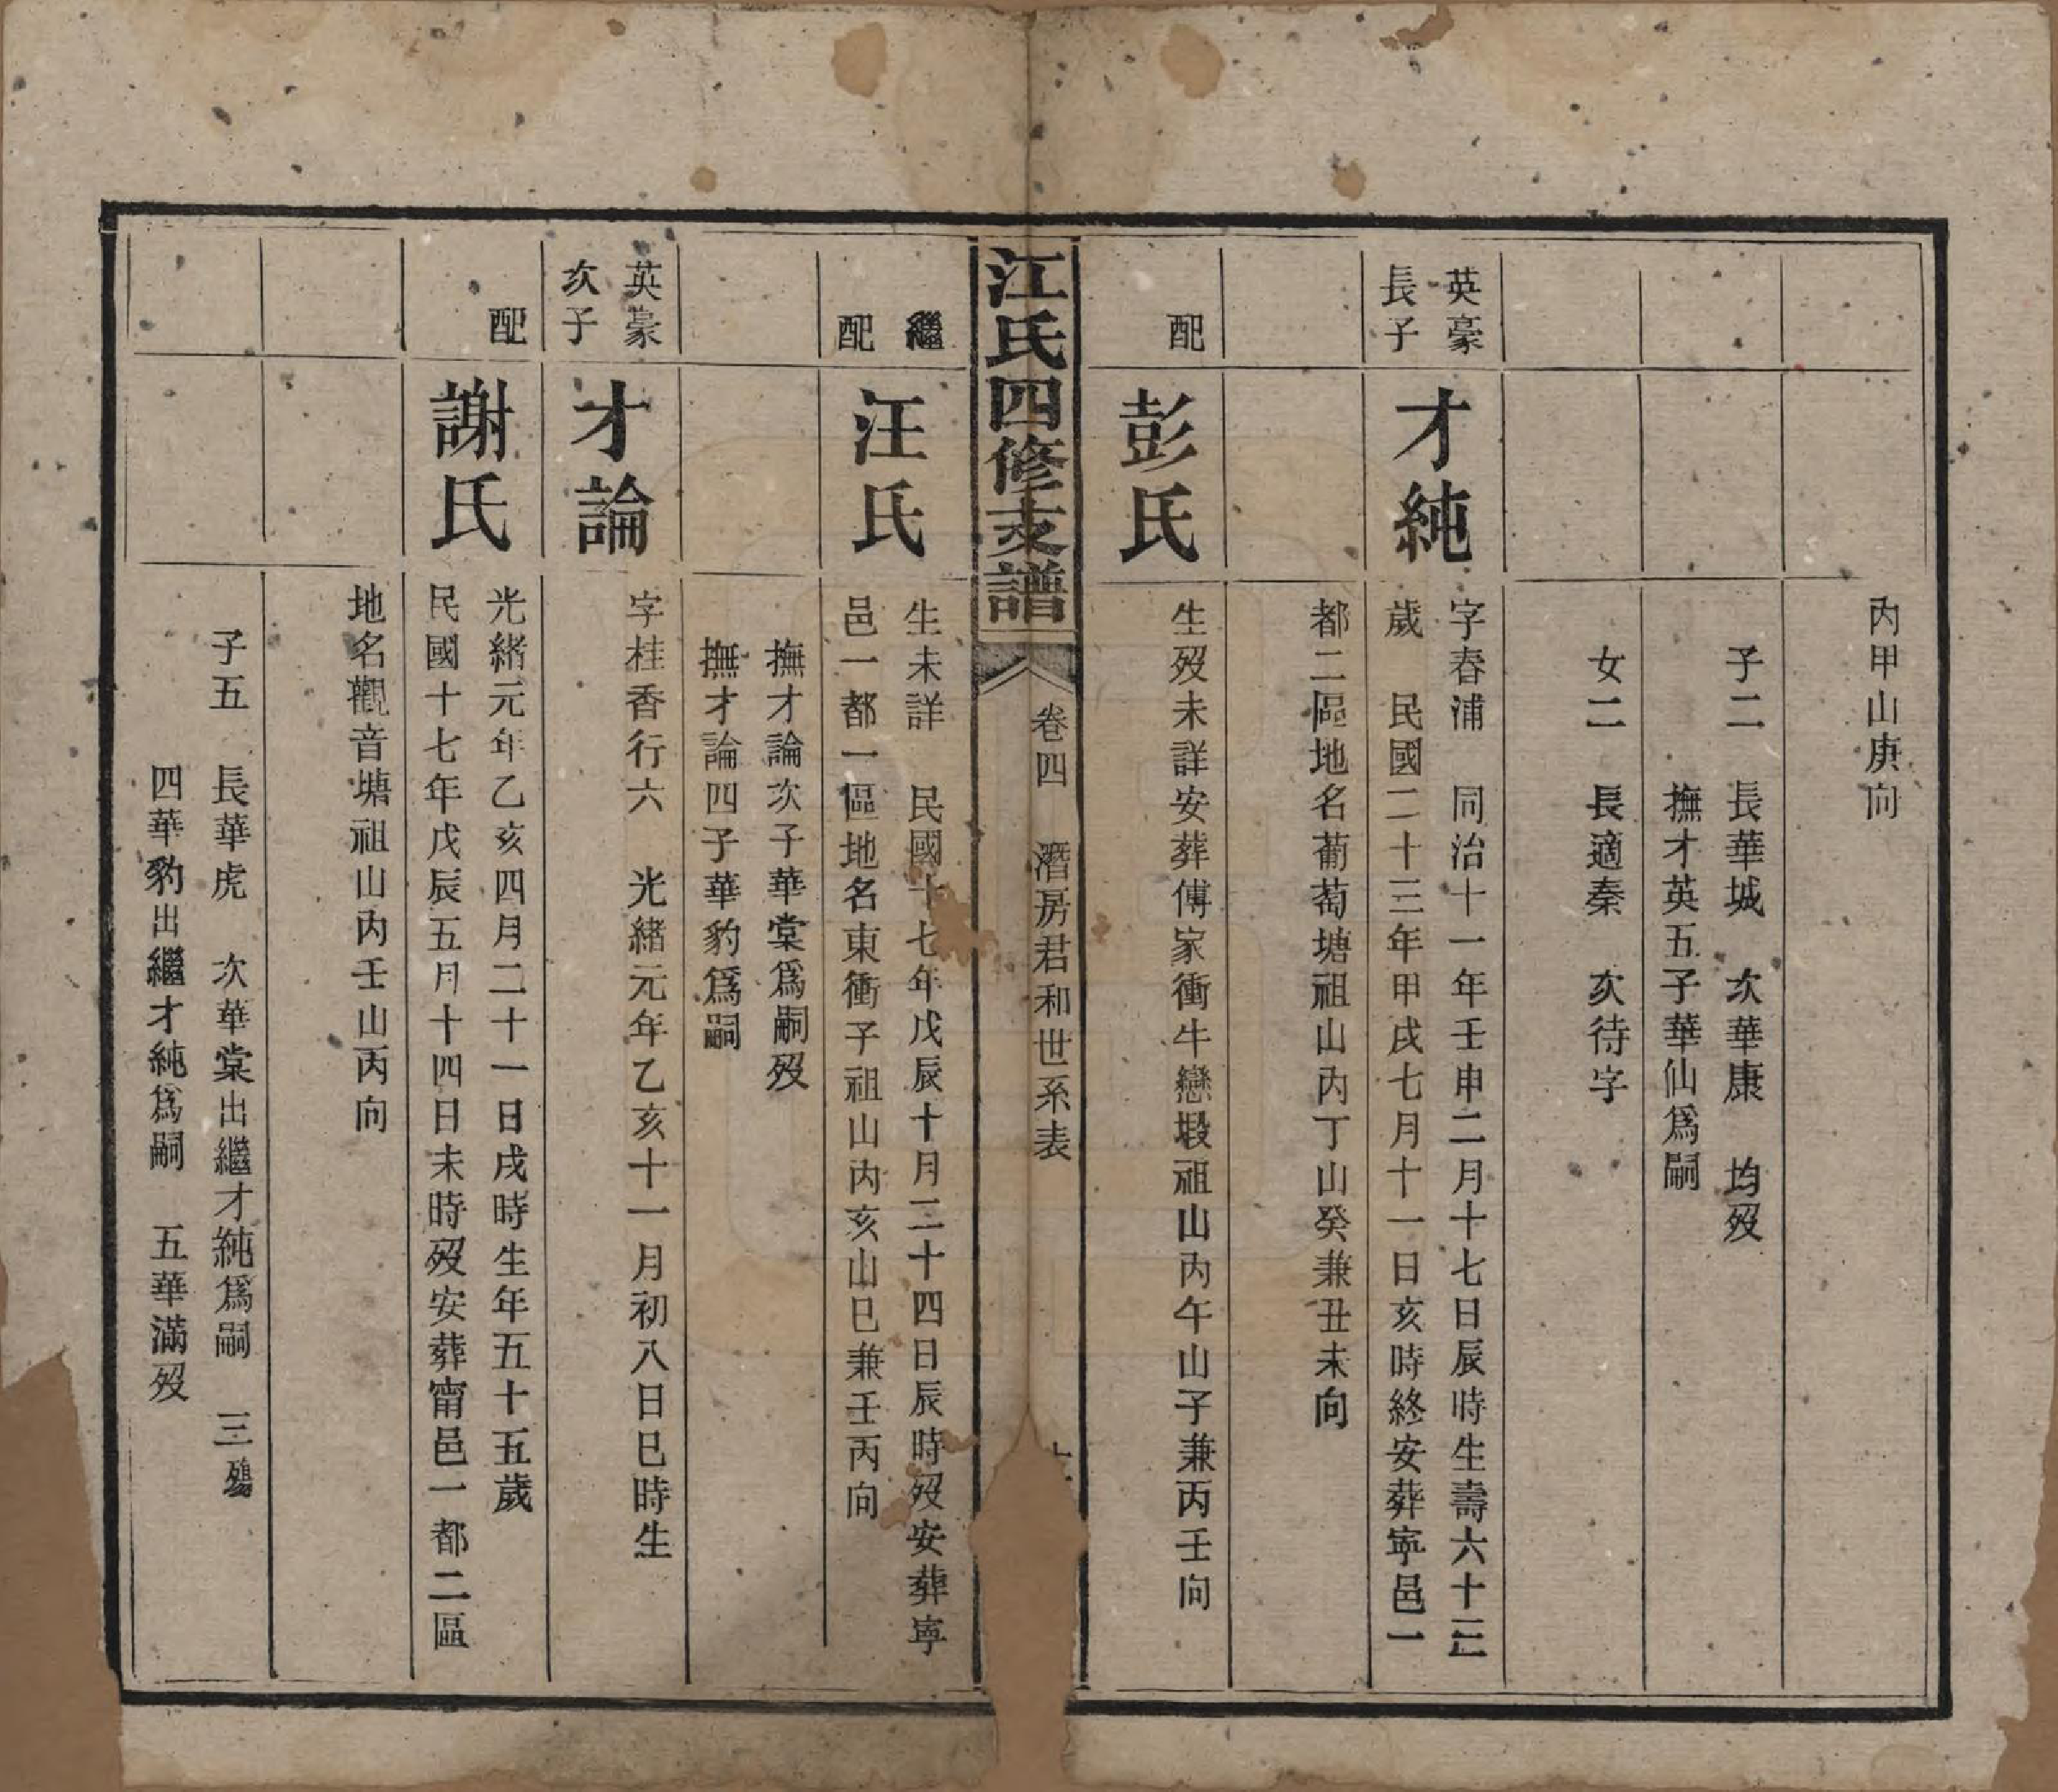 內甲山庚向
子二　長華城　次華康　均歿
撫才英五子華仙爲嗣
女二　長適秦　次待字
英豪
長子
才純
字春浦　同治十一年壬申二月十七日辰時生壽六十三
歲　民國二十三年甲戌七月十一日亥時終安葬寧邑一
都二區地名葡萄塘祖山內丁山癸兼丑未向
配
彭氏
生歿未詳安葬傅家衝牛戀塅祖山內午山子兼丙壬向
江氏四修支譜
卷四　潛房君和世系表
繼
配
汪氏
生未詳　民國十七年戊辰十月二十四日辰時歿安葬寧
邑一都一區地名東衝子祖山內亥山巳兼壬丙向
撫才論次子華棠爲嗣歿
撫才論四子華豹爲嗣
英豪
次子
才論
字桂香行六　光緒元年乙亥十一月初八日巳時生
配
謝氏
光緒元年乙亥四月二十一日戌時生年五十五歲
民國十七年戊辰五月十四日未時歿安葬甯邑一都二區
地名觀音塘祖山內壬山丙向
子五　長華虎　次華棠出繼才純爲嗣　三殤
四華豹出繼才純爲嗣　五華滿歿